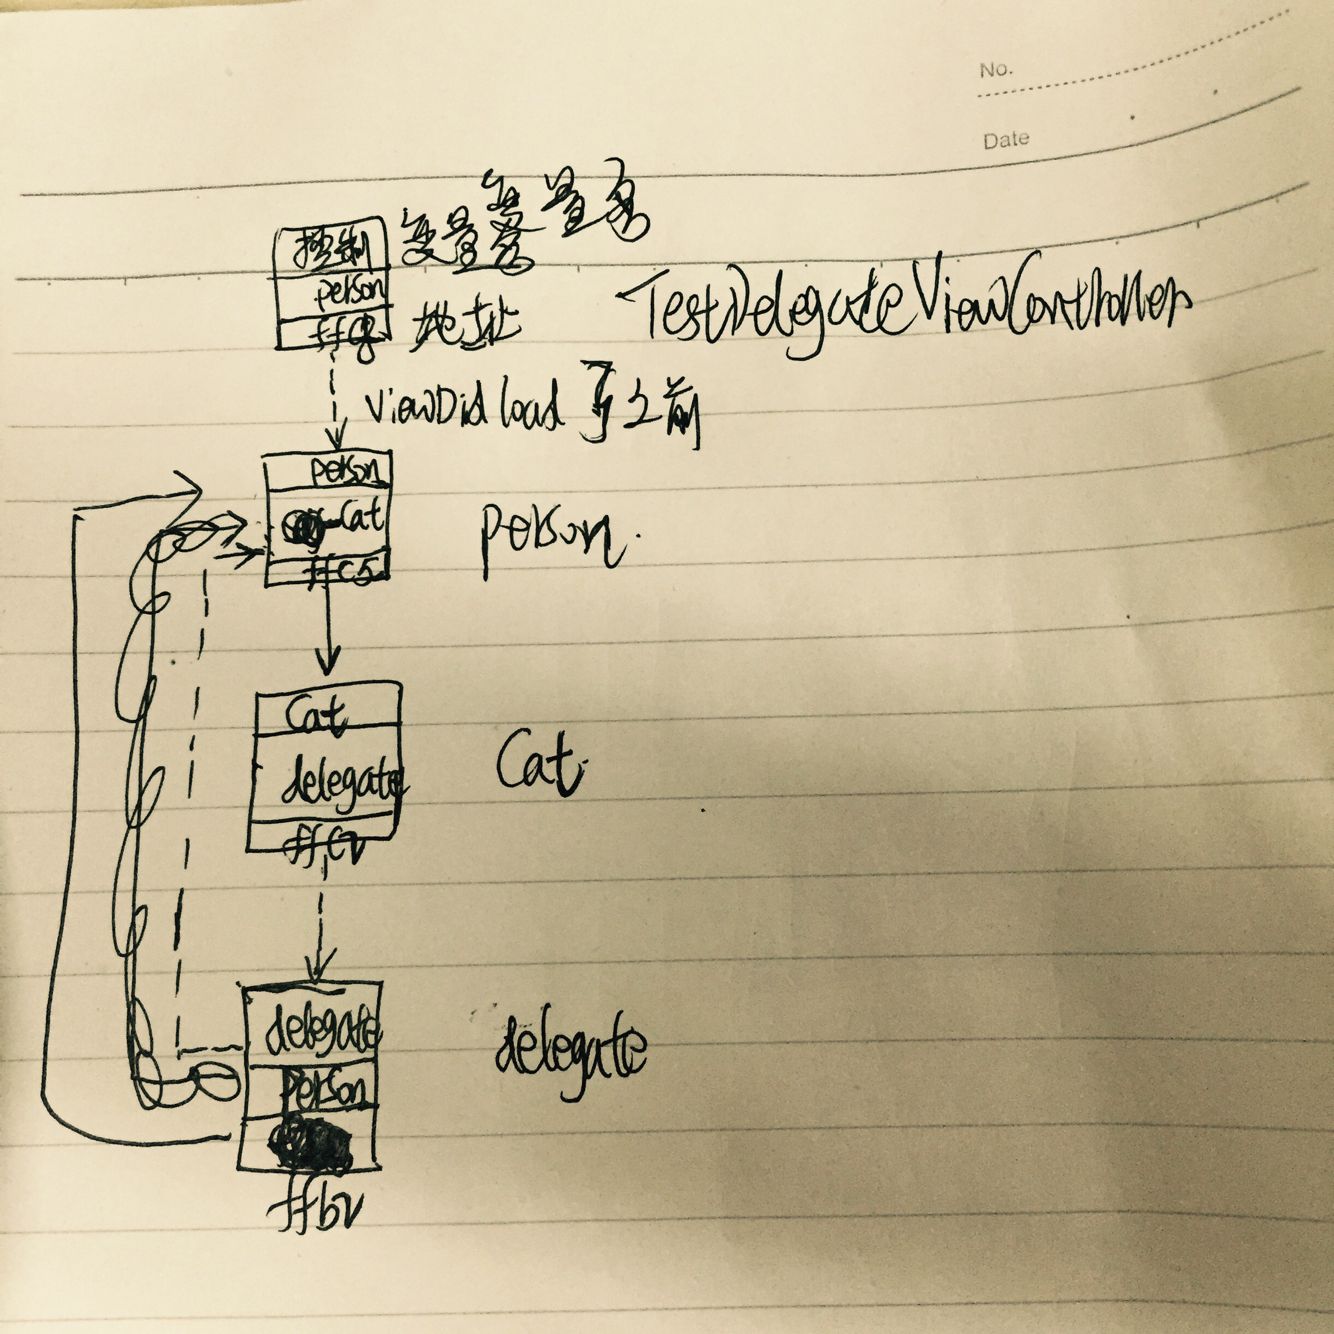 No.
Date
控制
变量
person
ffc8
地址
TestDelegateViewController
ViewDidload 了之前
person
Cat
ffc5
person.
Cat
delegate
ffc2
Cat.
delegate
person
ffb2
delegate